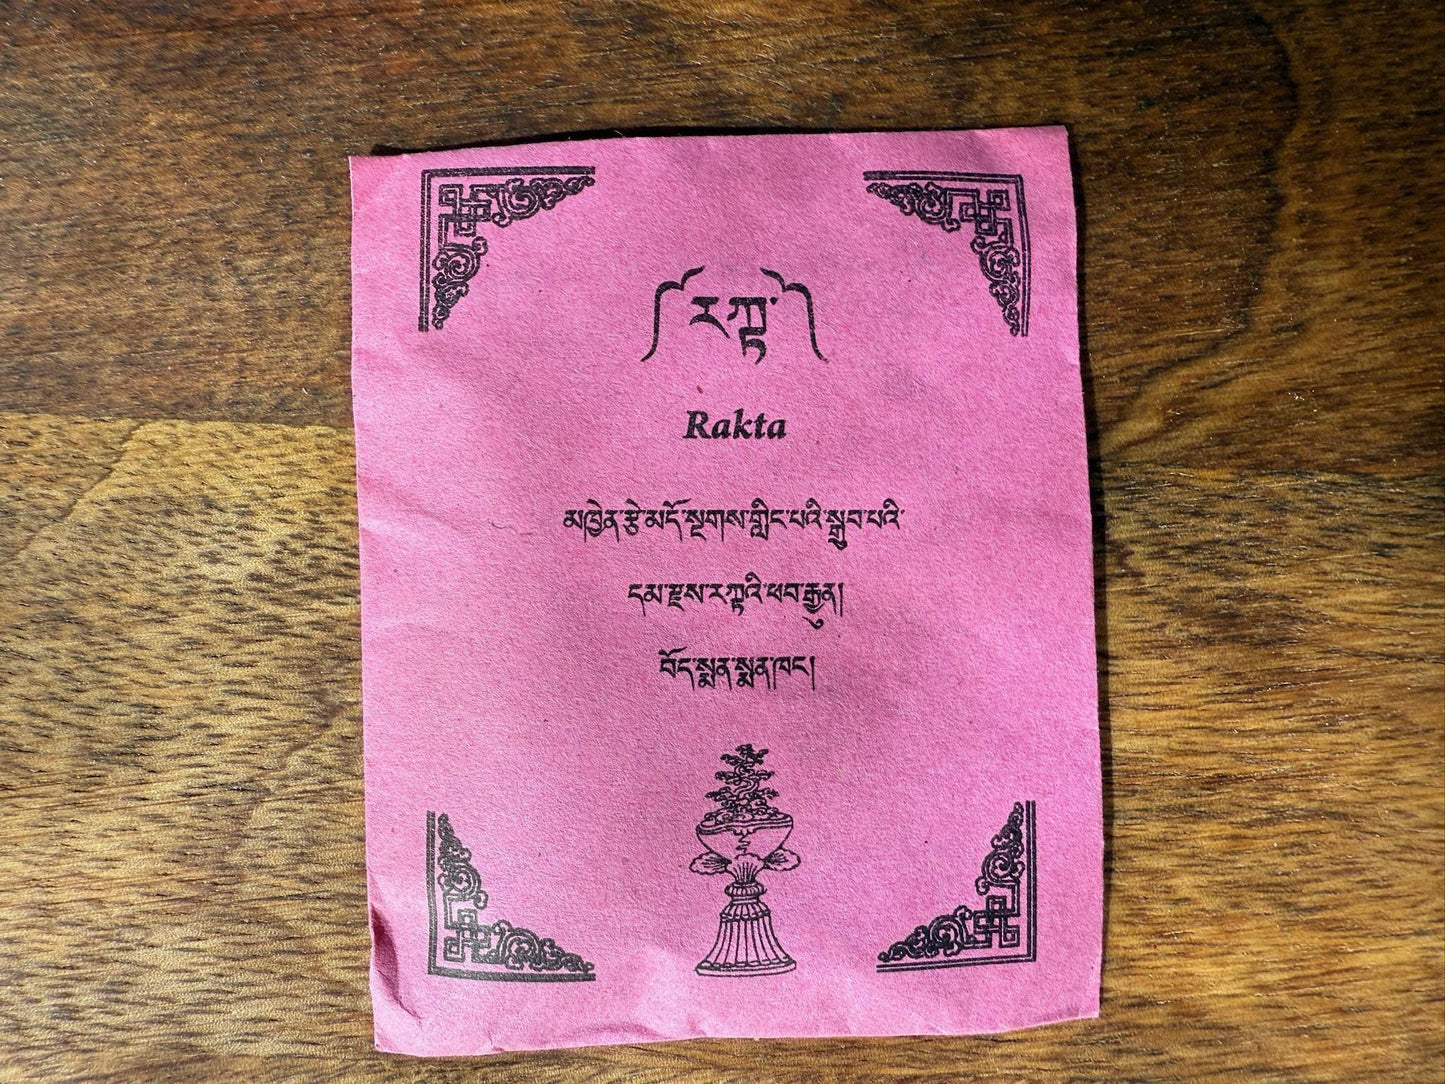 ༼རཀྟ་༽
Rakta
མཁྱེན་རྩེ་མདོ་སྔགས་གླིང་པའི་སྒྲུབ་པའི་
དམ་རྫས་རཀྟའི་ཕབ་རྒྱུན།
བོད་སྨན་སྨན་ཁང་།